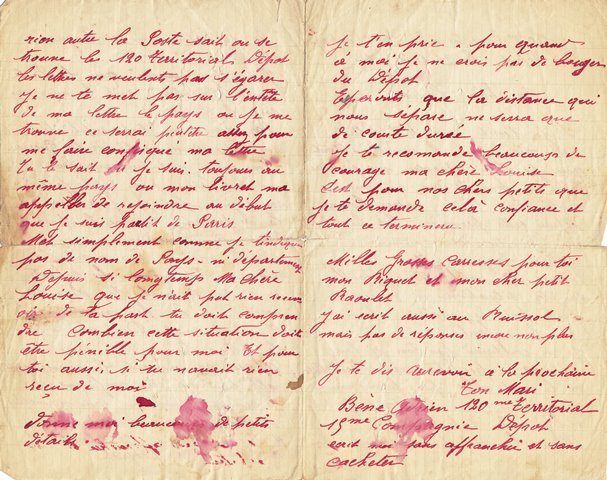 rien autre la Poste sait ou se
trouve le 120 Territorial Dépot
les lettres ne veulents pas s'égarer
je ne te met pas sur l'entête
de ma lettre le pays ou je me
trouve ce serrai pieutètre assez pour
me faire confisqué ma lettre
Tu le sait je suis toujours au
même pays ou mon livret ma
appellée de rejoindre au début
que je suis partit de Paris
Met simplement comme je t'indique
pas de nom de Pays - ni département
Depuis si longtemps Ma Chère
Louise que je n'ait put rien recevoir
de ta part tu doit comprendre
Combien cette situation doit
être pénible pour moi Et pour
toi aussi si tu n'avait rien
reçu de moi
donne moi beaucoup de petits
détails
je t'en prie - pour quand
à moi je ne crois pas de bouger
du Dépot
Esperonts que la distance qui
nous sépare ne serra que
de courte durée
Je te recomande beaucoups de
courage ma chère Louise
C'est pour nos chers petits que
je te demande celà confiance et
tout ce terminera
Milles Grosses Carresses pour toi
mon Riquet et mon cher petit
Raoulet
J'ai ecrit aussi au Buissol -
mais pas de réponses encore non plus
Je te dis aurevoir à la prochaine
Ton Mari
Bène Adrien 120 me Territorial
1ème Compagnie Dépot
ecrit moi sans affranchir et sans
cacheter